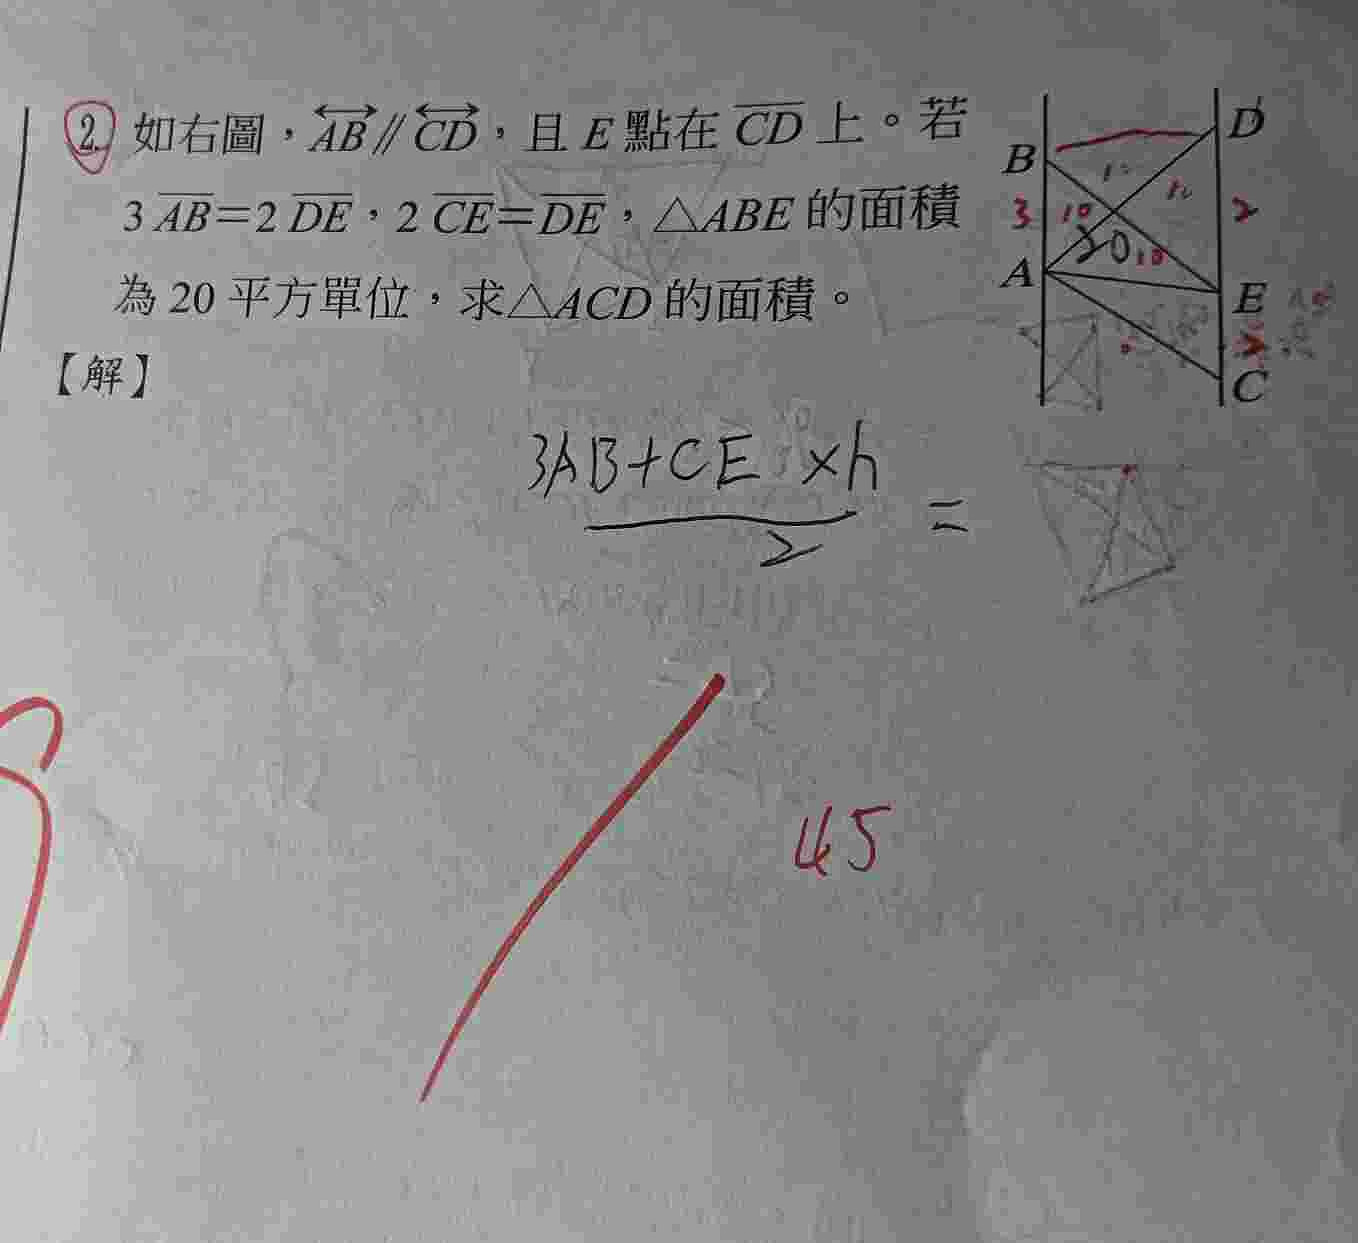 2. 如右圖，AB // CD，且 E 點在 CD 上。若
3 AB=2 DE，2 CE=DE，△ABE 的面積
為 20 平方單位，求△ACD 的面積。
【解】
B
D
3
10
2
20
10
A
E
C
3AB+CE ×h
2
=
45